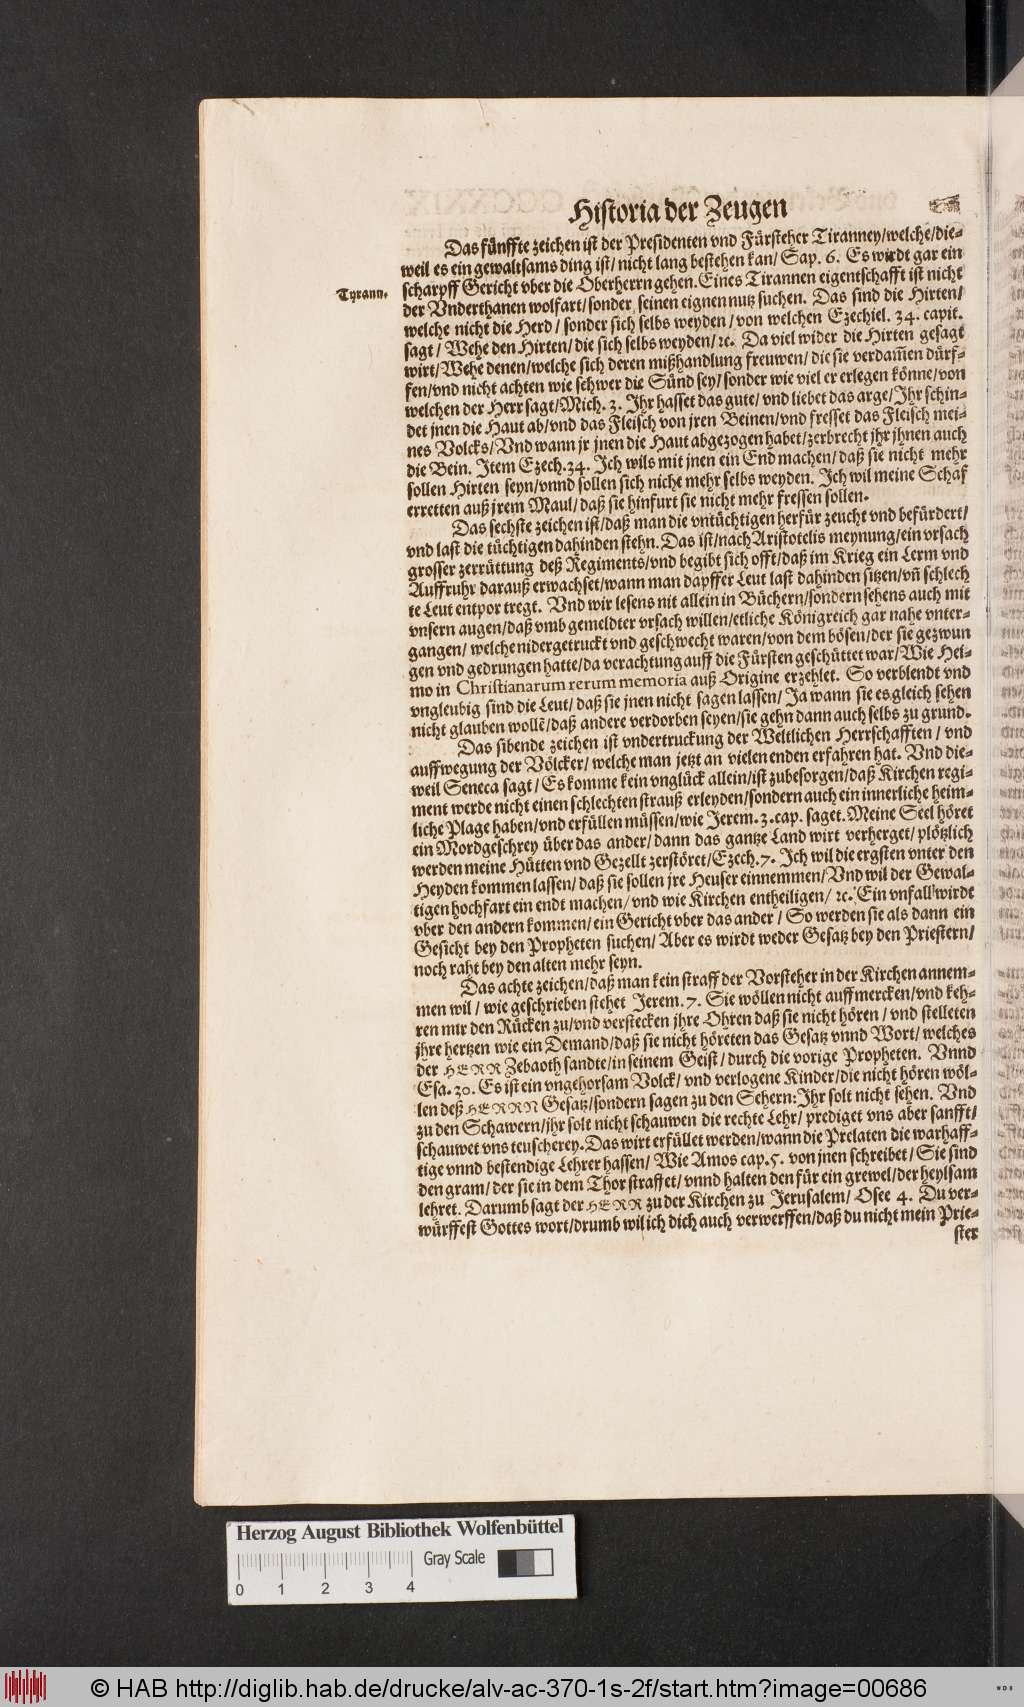 Historia der Zeugen
Das fünffte zeichen ist der Presidenten vnd Fürsteher Tiranney/welche/die-
weil es ein gewaltsams ding ist/ nicht lang bestehen kan/ Sap. 6. Es wirdt gar ein
scharpff Gericht vber die Oberherrn gehen. Eines Tirannen eigentschafft ist nicht
Tyrann.
der Vnderthanen wolfart/sonder seinen eignen nutz suchen. Das sind die Hirten/
welche nicht die Herd / sonder sich selbs weyden / von welchen Ezechiel. 34. capit.
sagt / Wehe den Hirten/ die sich selbs weyden/ ꝛc. Da viel wider die Hirten gesagt
wirt/ Wehe denen/welche sich deren mißhandlung freuwen/ die sie verdam̃en dürf-
fen/vnd nicht achten wie schwer die Sünd sey/ sonder wie viel er erlegen könne/von
welchen der Herr sagt/Mich. 3. Ihr hasset das gute/ vnd liebet das arge/ Ihr schin-
det jnen die Haut ab/vnd das Fleisch von jren Beinen/vnd fresset das Fleisch mei-
nes Volcks/ Vnd wann jr jnen die Haut abgezogen habet/zerbrecht jhr jhnen auch
die Bein. Item Ezech.34. Ich wils mit jnen ein End machen/ daß sie nicht mehr
sollen Hirten seyn/vnnd sollen sich nicht mehr selbs weyden. Ich wil meine Schaf
erretten auß jrem Maul/ daß sie hinfurt sie nicht mehr fressen sollen.
Das sechste zeichen ist/daß man die vntüchtigen herfür zeucht vnd befürdert/
vnd last die tüchtigen dahinden stehn. Das ist/nach Aristotelis meynung/ein vrsach
grosser zerrüttung deß Regiments/vnd begibt sich offt/daß im Krieg ein Lerm vnd
Auffruhr darauß erwachset/wann man dapffer Leut last dahinden sitzen/vñ schlech
te Leut entpor tregt. Vnd wir lesens nit allein in Büchern/sondern sehens auch mit
vnsern augen/daß vmb gemeldter vrsach willen/etliche Königreich gar nahe vnter-
gangen/ welche nidergetruckt vnd geschwecht waren/von dem bösen/der sie gezwun
gen vnd gedrungen hatte/da verachtung auff die Fürsten geschüttet war/Wie Hei-
mo in Christianarum rerum memoria auß Origine erzehlet. So verblendt vnd
vngleubig sind die Leut/ daß sie jnen nicht sagen lassen/ Ja wann sie es gleich sehen
nicht glauben wollẽ/daß andere verdorben seyen/sie gehn dann auch selbs zu grund.
Das sibende zeichen ist vndertruckung der Weltlichen Herrschafften / vnd
auffwegung der Völcker/ welche man jetzt an vielen enden erfahren hat. Vnd die-
weil Seneca sagt/ Es komme kein vnglück allein/ist zubesorgen/daß Kirchen regi-
ment werde nicht einen schlechten strauß erleyden/sondern auch ein innerliche heim-
liche Plage haben/vnd erfüllen müssen/wie Jerem. 3. cap. saget. Meine Seel höret
ein Mordgeschrey über das ander/ dann das gantze Land wirt verherget/ plötzlich
werden meine Hütten vnd Gezellt zerstöret/Ezech.7. Ich wil die ergsten vnter den
Heyden kommen lassen/ daß sie sollen jre Heuser einnemmen/Vnd wil der Gewal-
tigen hochfart ein endt machen/ vnd wie Kirchen entheiligen/ ꝛc. Ein vnfall wirdt
vber den andern kommen/ ein Gericht vber das ander / So werden sie als dann ein
Gesicht bey den Propheten suchen/ Aber es wirdt weder Gesatz bey den Priestern/
noch raht bey den alten mehr seyn.
Das achte zeichen/daß man kein straff der Vorsteher in der Kirchen annem-
men wil / wie geschrieben stehet Jerem. 7. Sie wöllen nicht auffmercken/vnd keh-
ren mir den Rücken zu/vnd verstecken jhre Ohren daß sie nicht hören / vnd stelleten
jhre hertzen wie ein Demand/daß sie nicht höreten das Gesatz vnnd Wort/ welches
der HERR Zebaoth sandte/in seinem Geist/ durch die vorige Propheten. Vnnd
Esa. 30. Es ist ein vngehorsam Volck/ vnd verlogene Kinder/die nicht hören wöl-
len deß HERRN Gesatz/sondern sagen zu den Sehern: Ihr solt nicht sehen. Vnd
zu den Schawern/jhr solt nicht schauwen die rechte Lehr/ prediget vns aber sanfft/
schauwet vns teuscherey. Das wirt erfüllet werden/wann die Prelaten die warhaff-
tige vnnd bestendige Lehrer hassen/ Wie Amos cap.5. von jnen schreibet/ Sie sind
den gram/ der sie in dem Thor straffet/ vnnd halten den für ein grewel/der heylsam
lehret. Darumb sagt der HERR zu der Kirchen zu Jerusalem/ Osee 4. Du ver-
würffest Gottes wort/drumb wil ich dich auch verwerffen/daß du nicht mein Prie-
ster
Herzog August Bibliothek Wolfenbüttel
Gray Scale
0 1 2 3 4
© HAB http://diglib.hab.de/drucke/alv-ac-370-1s-2f/start.htm?image=00686